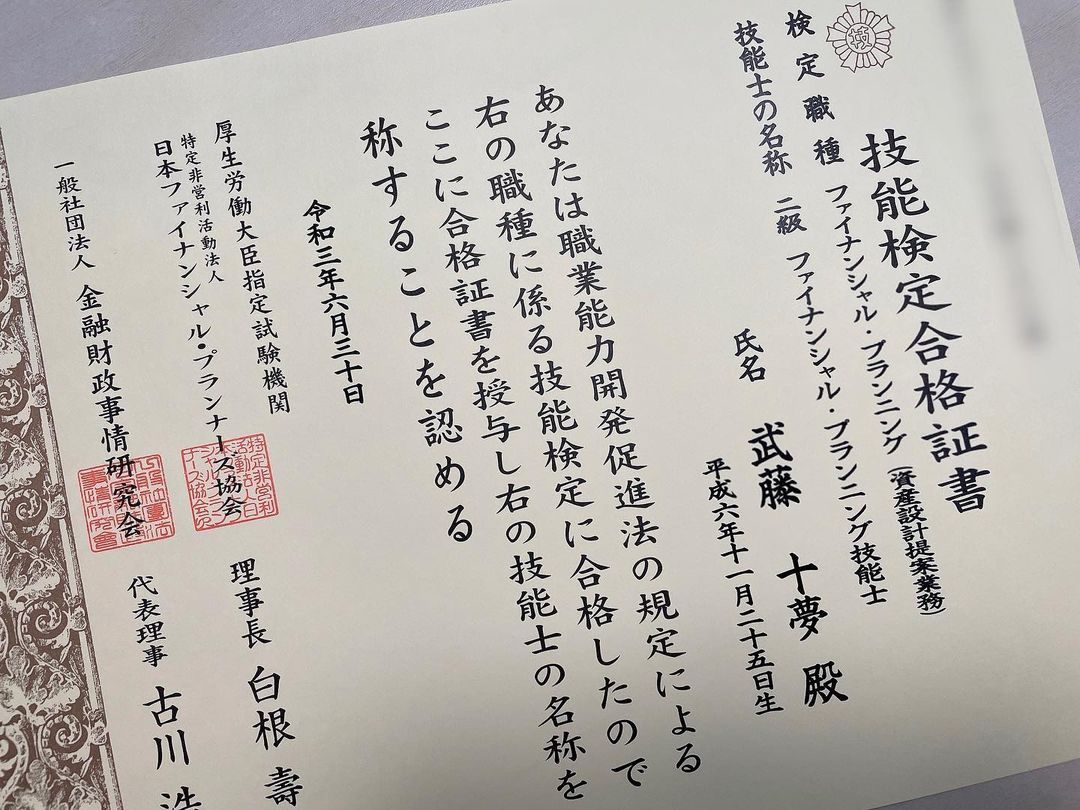 技能検定合格証書
検定職種 ファイナンシャル・プランニング(資産設計提案業務)
技能士の名称 二級 ファイナンシャル・プランニング技能士
氏名 武藤 十夢 殿
平成六年十一月二十五日生
あなたは職業能力開発促進法の規定による
右の職種に係る技能検定に合格したので
ここに合格証書を授与し右の技能士の名称を
称することを認める
令和三年六月三十日
厚生労働大臣指定試験機関
特定非営利活動法人
日本ファイナンシャル・プランナーズ協会 理事長 白根 壽
一般社団法人 金融財政事情研究会 代表理事 古川 浩
技